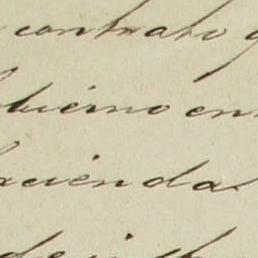 contrato
bierno en
aciendas